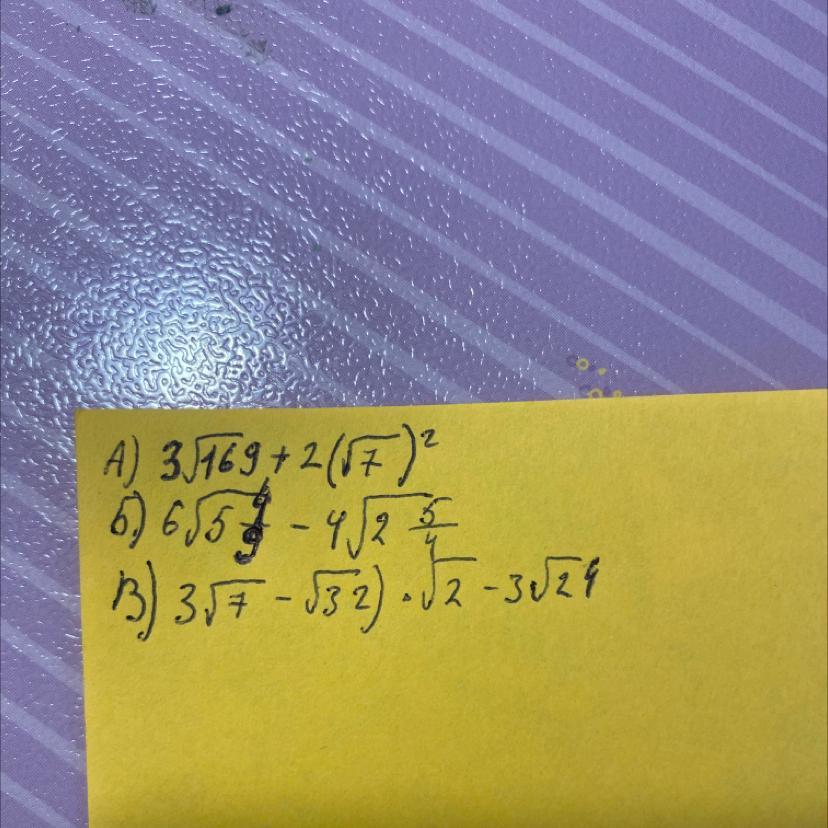 А) 3√169 + 2(√7)²
Б) 6√5 4/9 - 4√2 5/4
В) 3√7 - √32) · √2 - 3√24